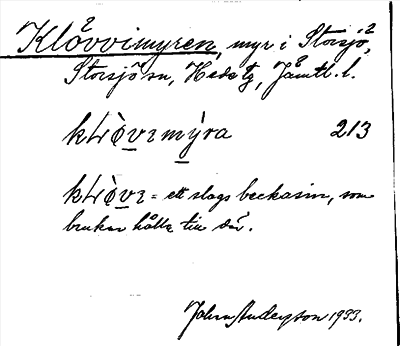 Klövvimyren, myr i Storsjö,
Storsjö sn, Heds tg, Jämtl. l.
myra 213
= ett slags beckasin, som
brukar hålla till där.
John Anderson 1933.